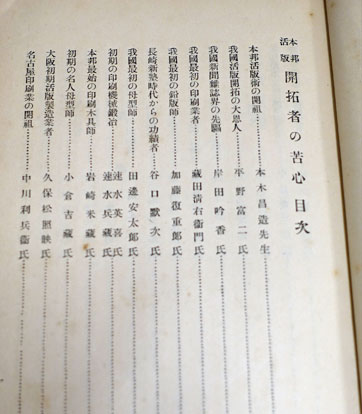 本邦活版 開拓者の苦心 目次
本邦活版術の開祖………本木昌造先生
我國活版開拓の大恩人………平野富二氏
我國新聞雜誌界の先驅………岸田吟香氏
我國最初の印刷業者………藏田清右衞門氏
我國最初の鉛版師………加藤復重郎氏
長崎新塾時代からの功績者………谷口默次氏
我國最初の母型師………田邊安太郎氏
初期の印刷機械鍛冶………速水英喜氏 速水兵藏氏
本邦最始の印刷木具師………岩崎米藏氏
初期の名人母型師………小倉吉藏氏
大阪初期活版製造業者………久保松照映氏
名古屋印刷業の開祖………中川利兵衞氏